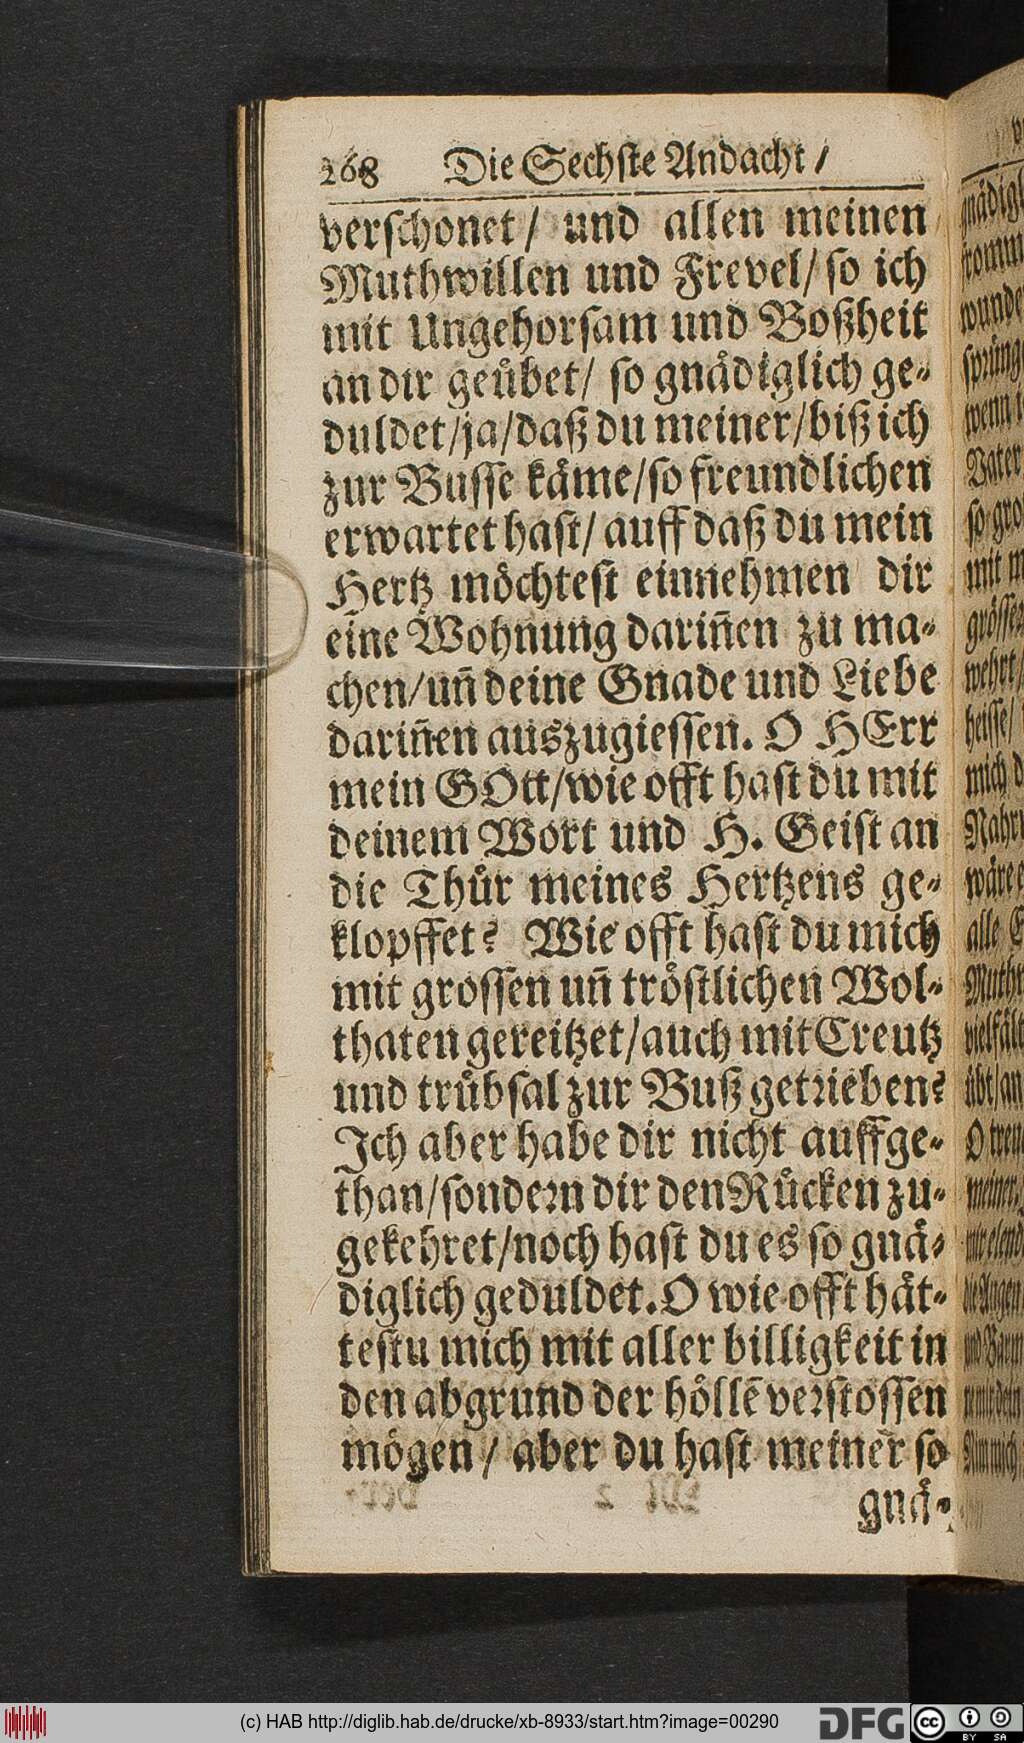 268 Die Sechste Andacht /
verschonet / und allen meinen
Muthwillen und Frevel / so ich
mit Ungehorsam und Boßheit
an dir geübet / so gnädiglich ge-
duldet / ja / daß du meiner / biß ich
zur Busse käme / so freundlichen
erwartet hast / auff daß du mein
Hertz möchtest einnehmen dir
eine Wohnung dariñen zu ma-
chen / uñ deine Gnade und Liebe
dariñen auszugiessen. O HErr
mein GOtt / wie offt hast du mit
deinem Wort und H. Geist an
die Thür meines Hertzens ge-
klopffet? Wie offt hast du mich
mit grossen uñ tröstlichen Wol-
thaten gereitzet / auch mit Creutz
und trübsal zur Buß getrieben?
Ich aber habe dir nicht auffge-
than / sondern dir den Rücken zu-
gekehret / noch hast du es so gnä-
diglich geduldet. O wie offt hät-
testu mich mit aller billigkeit in
den abgrund der höllē verstossen
mögen / aber du hast meiner so
gnä-
(c) HAB http://diglib.hab.de/drucke/xb-8933/start.htm?image=00290
DFG
cc BY SA